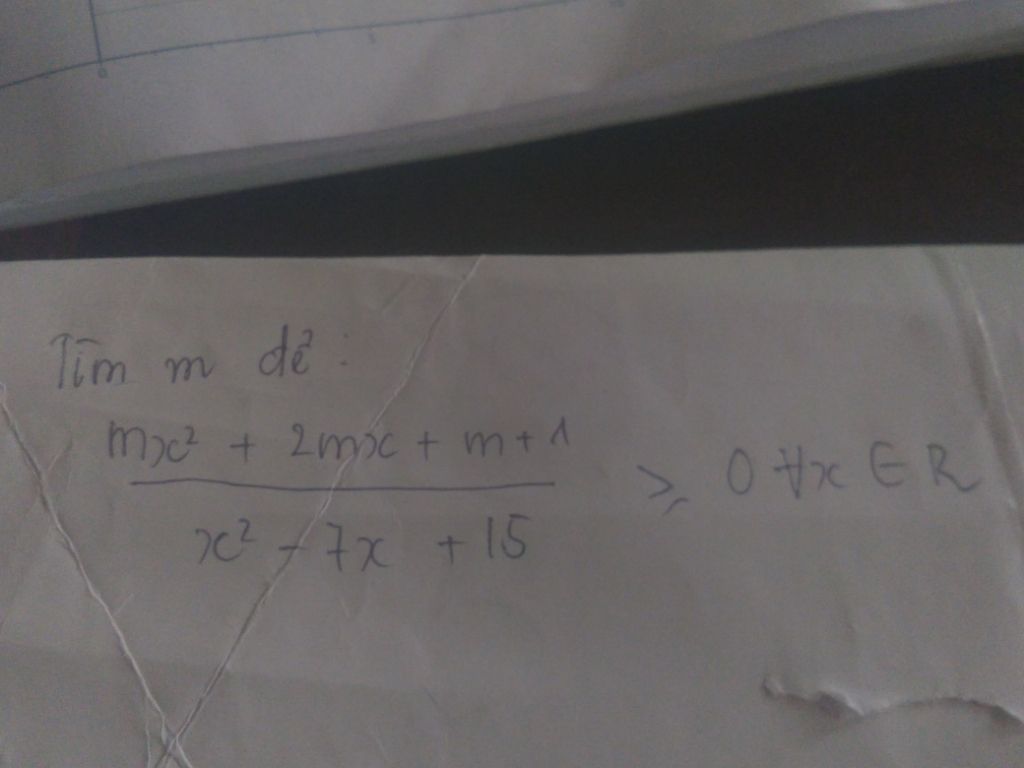 Tìm m để :
mx² + 2mx + m+1
x² - 7x + 15
≥ 0 ∀x ∈ R